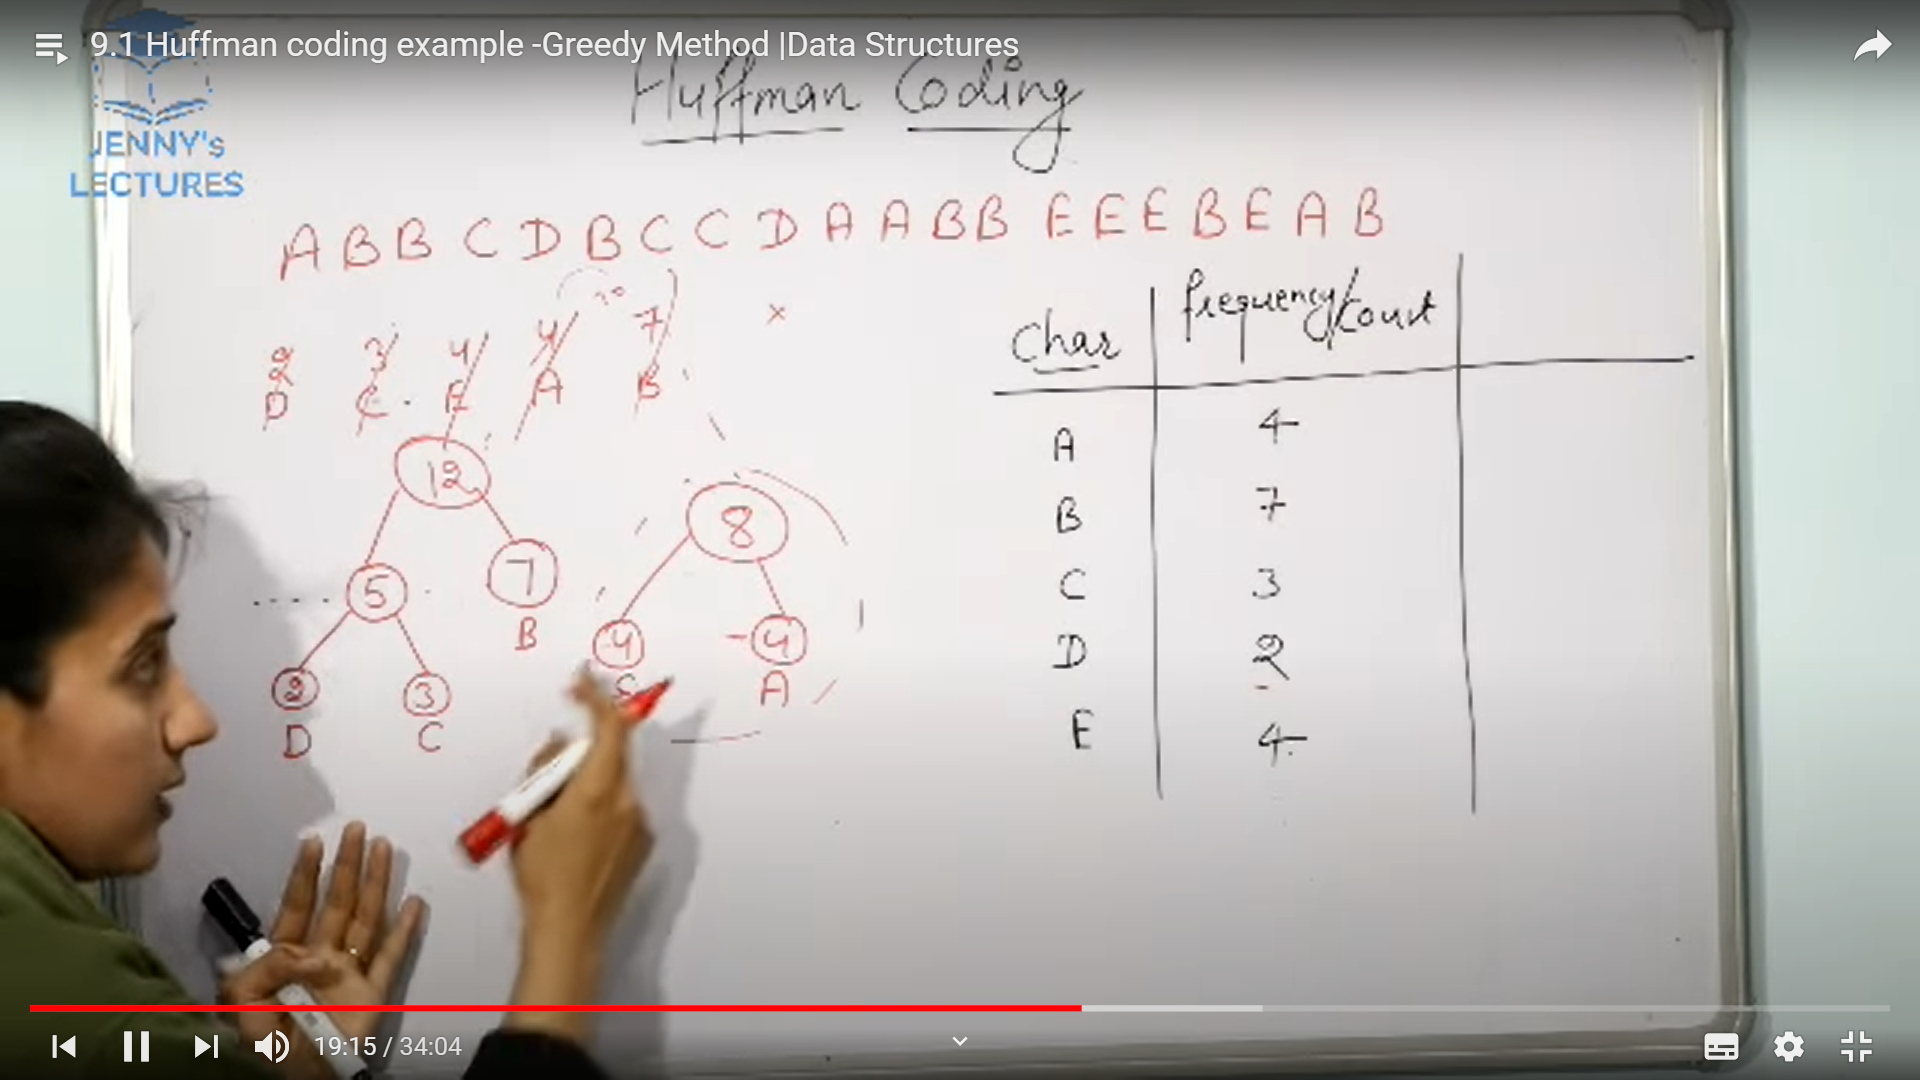 9.1 Huffman coding example -Greedy Method |Data Structures
JENNY's
LECTURES
Huffman Coding
A B B C D B C C D A A B B E E E B E A B
2 3 4 4 7 x
D C E A B
12
8
5 7
B
4 4
A
2 3
D C
Char frequency/Count
A 4
B 7
C 3
D 2
E 4
19:15 / 34:04